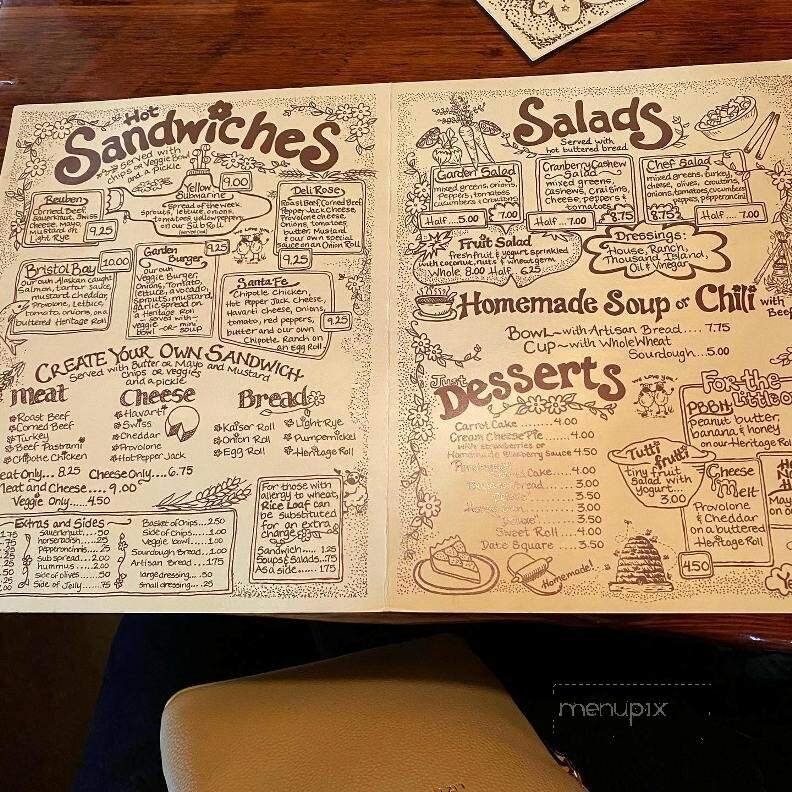 Hot
Sandwiches
served with
chips or Veggie Bowl
and a pickle
Reuben
Corned Beef,
Sauerkraut, Swiss
cheese, Hot
Mustard on
Light Rye
9.25
Yellow
Submarine
9.00
Spread of the week,
sprouts, lettuce, onions,
tomatoes, yellow peppers
on our Sub Roll
Deli Rose
Roast Beef, Corned Beef,
Pepper Jack Cheese,
Provolone cheese,
Onions, tomatoes,
butter, Mustard
& our own special
sauce on an Onion Roll
9.25
Bristol Bay
10.00
our own Alaskan caught
salmon, tartar sauce,
mustard, cheddar,
Provolone, Lettuce,
tomato, onions, on a
buttered Heritage Roll
Garden
Burger
9.25
our own
Veggie Burger,
Onions, Tomato,
lettuce, avocado,
sprouts, mustard,
garlic spread on
a Heritage Roll
served with
veggie -or- mini
bowl soup
Santa Fe
Chipotle Chicken,
Hot Pepper Jack Cheese,
Havarti cheese, onions,
tomato, red peppers,
butter and our own
Chipotle Ranch on
an Egg Roll
9.25
Create Your Own Sandwich
Served with Butter or Mayo and Mustard
chips or veggies
and a pickle
Meat
Roast Beef
Corned Beef
Turkey
Beef Pastrami
Chipotle Chicken
Cheese
Havarti
Swiss
Cheddar
Provolone
Hot Pepper Jack
Bread
Kaiser Roll
Onion Roll
Egg Roll
Light Rye
Pumpernickel
Heritage Roll
Meat Only... 8.25 Cheese Only.... 6.75
Meat and Cheese..... 9.00
Veggie Only..... 4.50
Extras and Sides
sauerkraut.....50
horseradish.....25
pepperoncinis.....25
sub spread.....2.00
hummus.....2.00
side of olives.....50
Side of Jelly.....75
Basket of Chips....2.50
Side of Chips.....1.00
Veggie bowl.....1.00
Sourdough Bread...1.00
Artisan Bread....1.75
large dressing....50
small dressing....25
For those with
allergy to wheat,
Rice Loaf can
be substituted
for an extra
charge
Sandwich.... 1.25
Soups & Salads..75
As a side..... 1.75
Salads
Served with
hot buttered bread
Garden Salad
mixed greens, onions,
Peppers, tomatoes,
cucumbers & croutons
Half ....5.00 7.00
Cranberry Cashew
Salad
mixed greens,
cashews, craisins,
cheese, peppers &
tomatoes
Half .... 7.00 8.75
Chef Salad
mixed greens, turkey,
cheese, olives, croutons,
onions, tomatoes, cucumbers,
peppers, pepperoncini
8.75 Half .... 7.00
Fruit Salad
fresh fruit & yogurt sprinkled
with coconut, nuts & wheat germ
Whole 8.00 Half 6.25
Dressings:
House, Ranch,
Thousand Island,
Oil & Vinegar
Homemade Soup or Chili with
Beef
Bowl~with Artisan Bread.... 7.75
Cup~with Whole Wheat
Sourdough...5.00
Just
Desserts
Carrot Cake ..........4.00
Cream Cheese Pie ..... 4.00
with Strawberries or
Homemade Blueberry Sauce 4.50
Cake .... 4.00
Bread ..... 3.00
3.50
3.00
3.50
Sweet Roll .... 4.00
Date Square .... 3.50
Homemade!
We Love You!
Tutti
frutti
tiny fruit
salad with
yogurt
3.00
For-the-
Little
PBBH
peanut butter,
banana & honey
on our Heritage Roll
Cheese
Melt
Provolone
& Cheddar
on a buttered
Heritage Roll
4.50
menupix